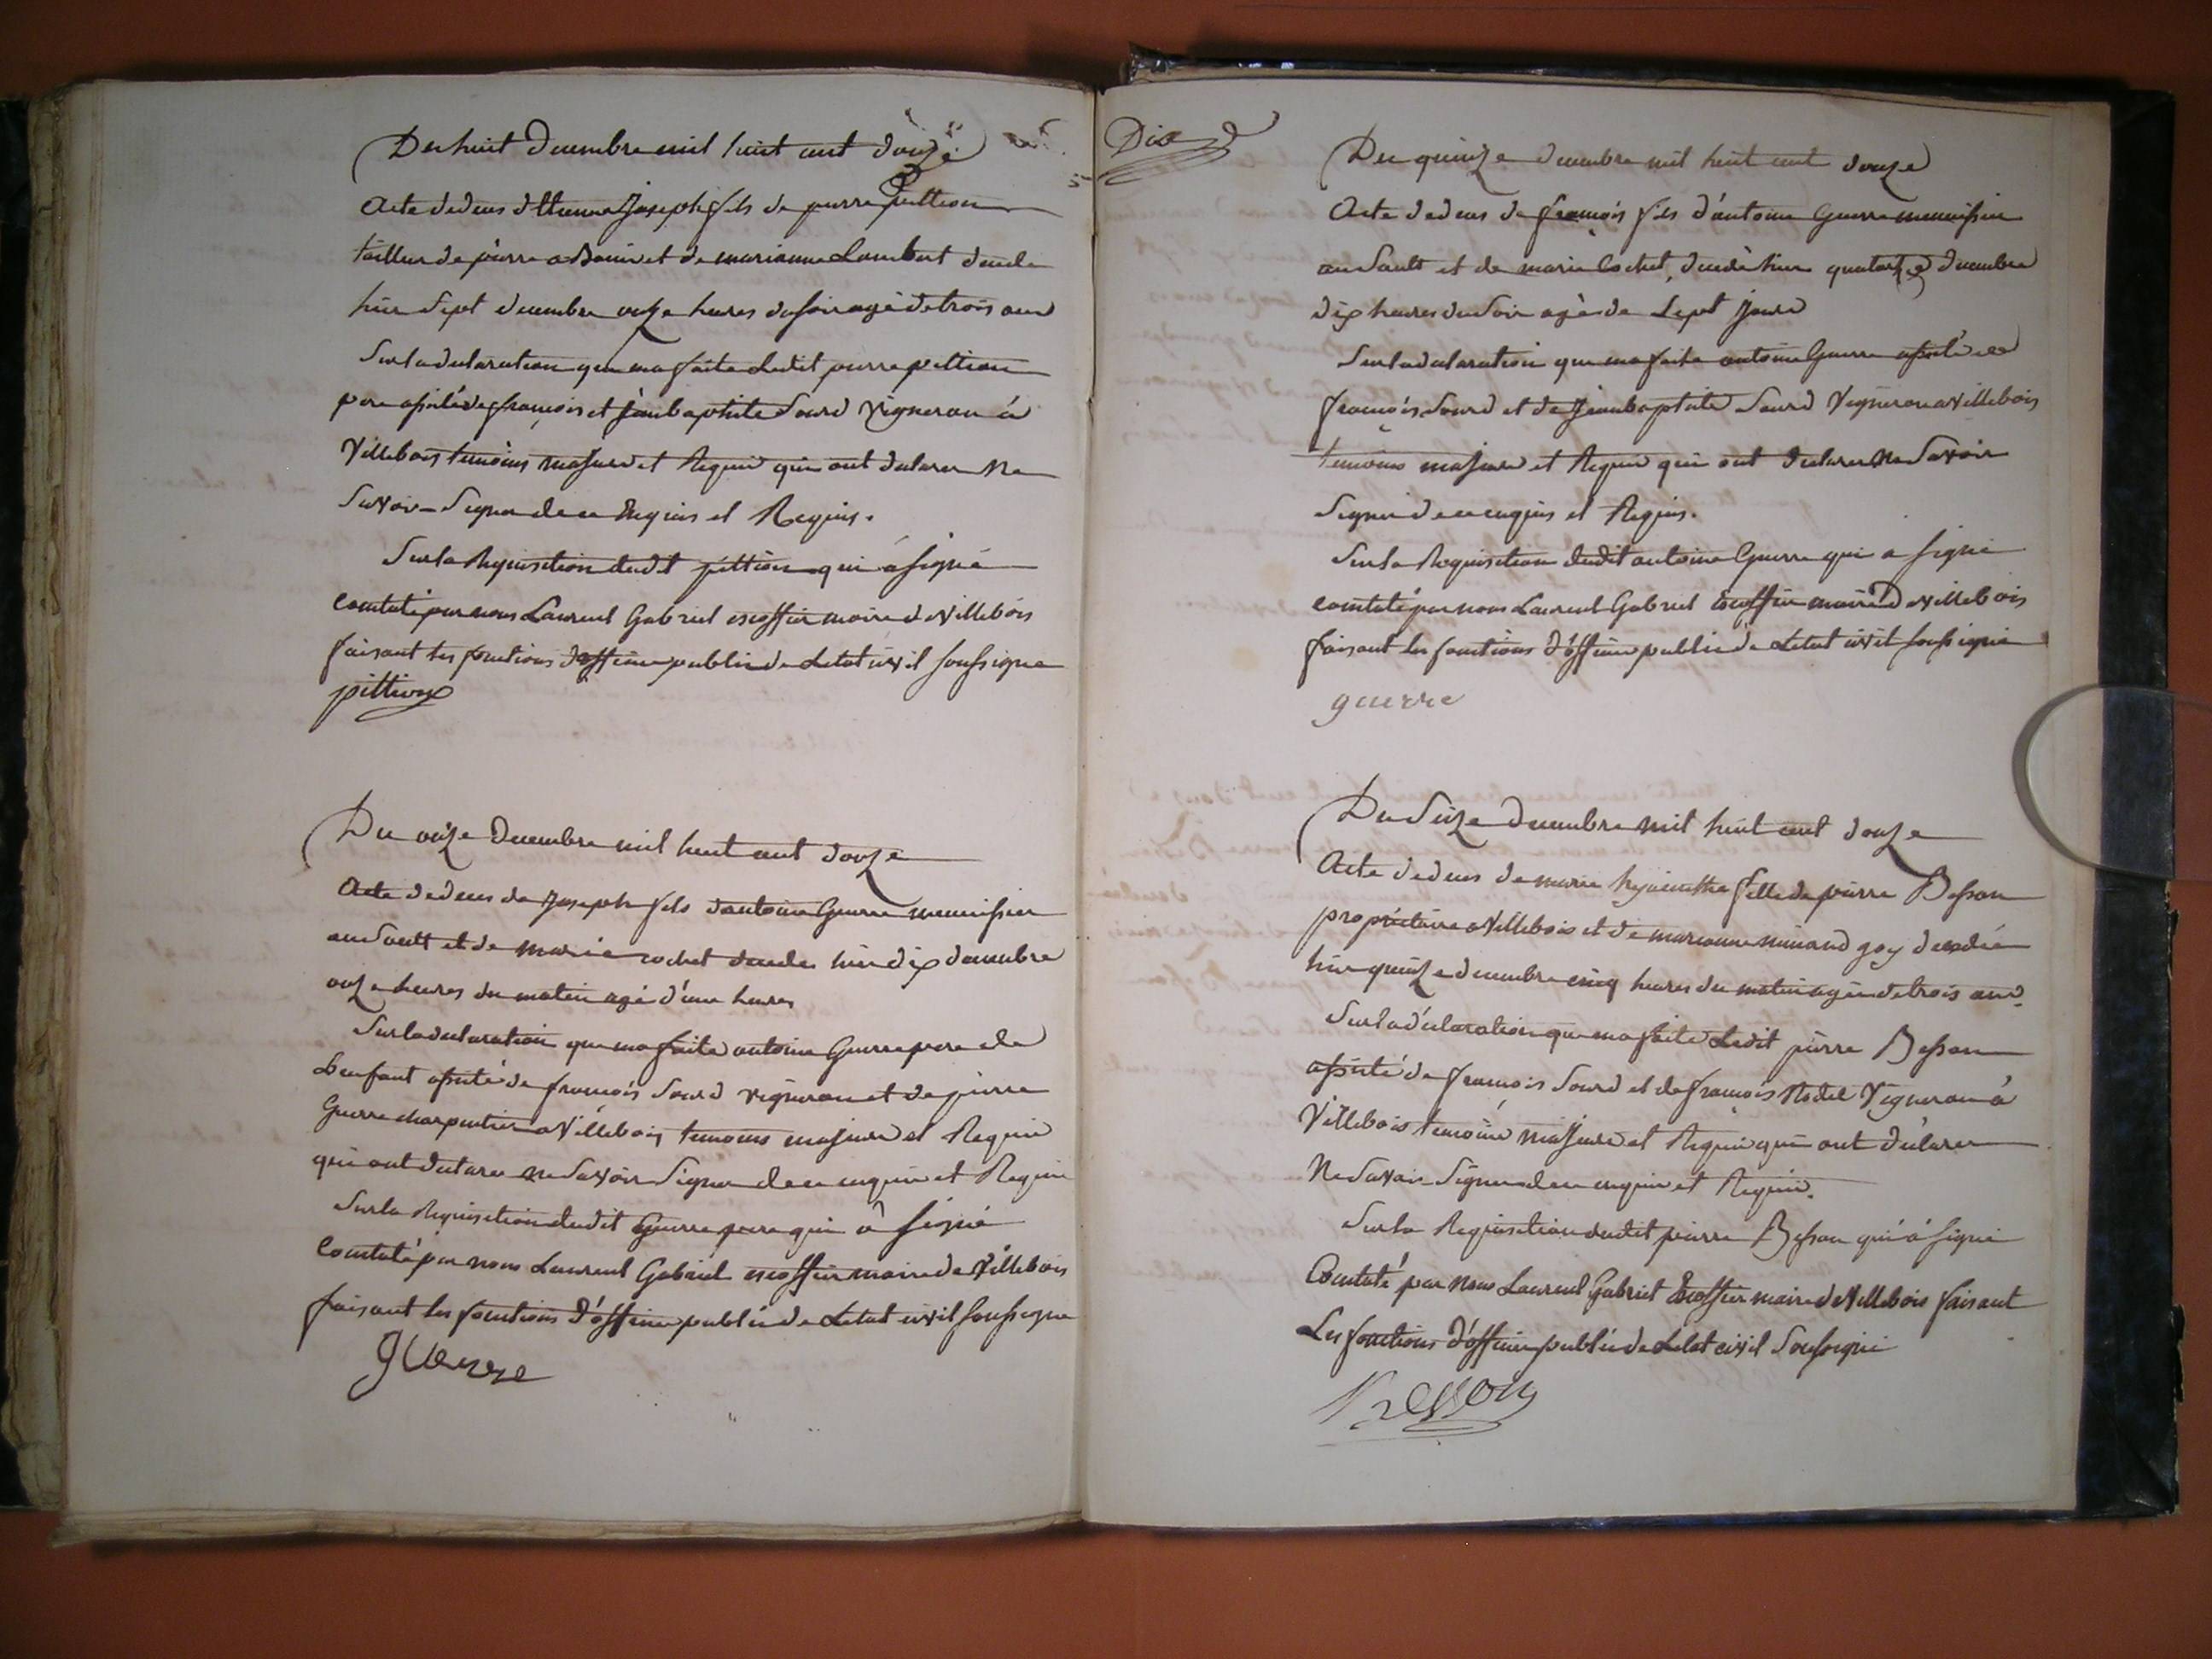 Du huit decembre mil huit cent douze
Acte de deces d'Etienne Joseph fils de pierre pittion
tailleur de pierre a Bouis et de marianne Lambert decede
hier Sept decembre onze heures du soir agé de trois ans
Sur la declaration que ma faite Ledit pierre pittion
pere assisté de françois et Jean baptiste Sourd Vigneron á
Villebois temoins majeurs et Requis qui ont declarer Ne
Savoir Signer de ce Enquis et Requis.
Sur la Requisition dudit pittion qui á signé
Constaté par nous Laurent Gabriel escoffier maire de Villebois
faisant les fonctions d'officier public de Letat civil soussigné
pittion
Du onze Decembre mil huit cent douze
Acte de deces de Joseph fils d'antoine Guerre menuisier
au Sault et de marie cochet decedé hier dix decembre
onze heures du matin agé d'une heures
Sur la declaration que ma faite antoine Guerre pere de
Lenfant assisté de françois Sourd vigneron et de pierre
Guerre charpentier a Villebois temoins majeurs et Requis
qui ont declarer ne Savoir Signer de ce enquis et Requis
Sur la Requisition dudit Guerre pere qui á signé
Constaté par nous Laurent Gabriel escoffier maire de Villebois
faisant les fonctions d'officier public de Letat civil soussigné
guerre
Dix
Du quinze decembre mil huit cent douze
Acte de deces de françois fils d'antoine Guerre menuisier
au Sault et de marie Cochet, decedé hier quatorze decembre
dix heures du Soir agé de Sept Jours
Sur la declaration que ma faite antoine Guerre assisté de
françois Sourd et de Jean baptiste Sourd Vigneron a Villebois
temoins majeurs et Requis qui ont declarer Ne Savoir
Signer de ce enquis et Requis.
Sur la Requisition dudit antoine Guerre qui a signé
constaté par nous Laurent Gabriel Escoffier maire de Villebois
faisant les fonctions d'officier public de Letat civil soussigné
guerre
Du Seize decembre mil huit cent douze
Acte de deces de marie hyacinthe fille de pierre Besson
propriétaire a Villebois et de marianne minand goy decedée
hier quinze decembre cinq heures du matin agée de trois ans.
Sur la déclaration que ma faite Ledit pierre Besson
assisté de françois Sourd et de françois Rodet Vigneron á
Villebois temoins majeurs et Requis qui ont déclarer
Ne Savoir Signer de ce enquis et Requis.
Sur la Requisition dudit pierre Besson qui á signé
Constaté par Nous Laurent Gabriel Escoffier maire de Villebois faisant
Les fonctions d'officier public de Letat civil Soussigné
Besson